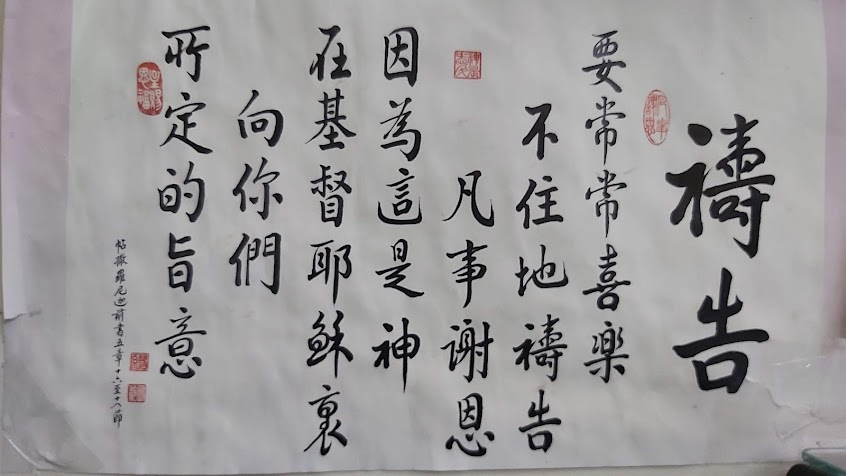 禱告
要常常喜樂
不住地禱告
凡事謝恩
因為這是神
在基督耶穌裏
向你們
所定的旨意
帖撒羅尼迦前書五章十六至十八節